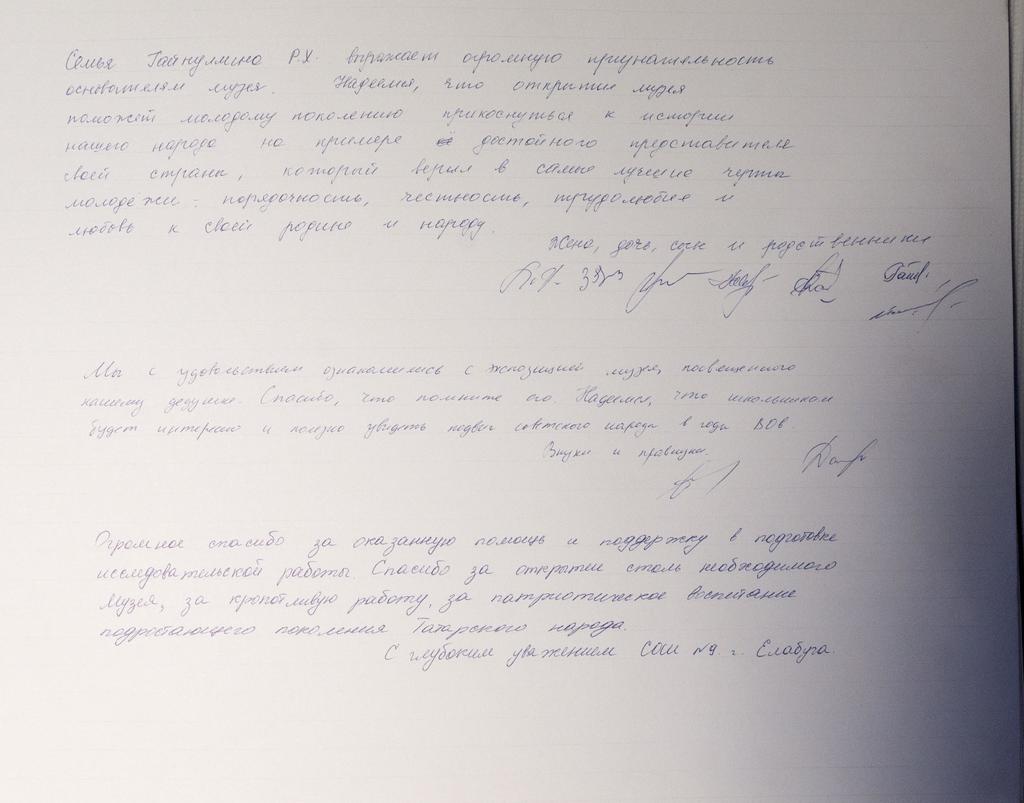 Семья Гайнуллина Р.Х. выражает огромную признательность
основателям музея. Надеемся, что открытие музея
поможет молодому поколению прикоснуться к истории
нашего народа на примере достойного представителя
своей страны, который верил в самые лучшие черты
молодёжи - порядочность, честность, трудолюбие и
любовь к своей родине и народу.
Жена, дочь, сын и родственники
Мы с удовольствием ознакомились с экспозицией музея, посвещенного
нашему дедушке. Спасибо, что помните его. Надеемся, что школьникам
будет интересно и полезно увидеть подвиг советского народа в годы ВОв.
Внуки и правнуки.
Огромное спасибо за оказанную помощь и поддержку в подготовке
исследовательской работы. Спасибо за открытие столь необходимого
Музея, за кропотливую работу, за патриотическое воспитание
подростающего поколения Татарского народа.
С глубоким уважением СОШ №9. г. Елабуга.